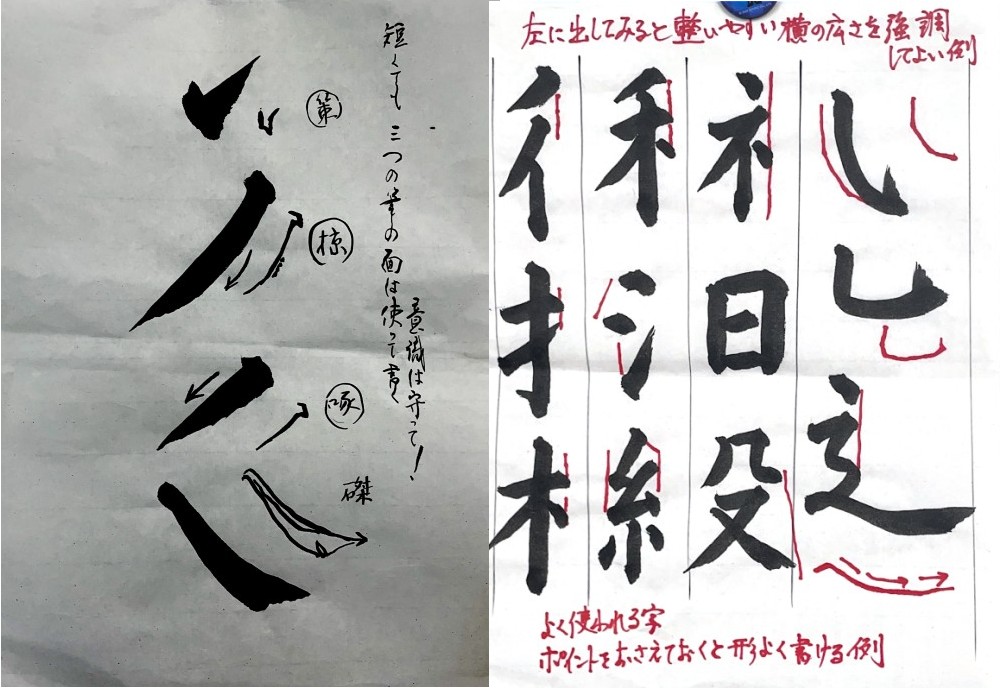 短くても 三つの筆の面は使って書く
意識は守って!
策
掠
啄
磔
左に出してみると整いやすい横の広さを強調
してよい例
辶
礻日殳
禾氵糸
亻扌木
よく使われる字
ポイントをおさえておくと形よく書ける例